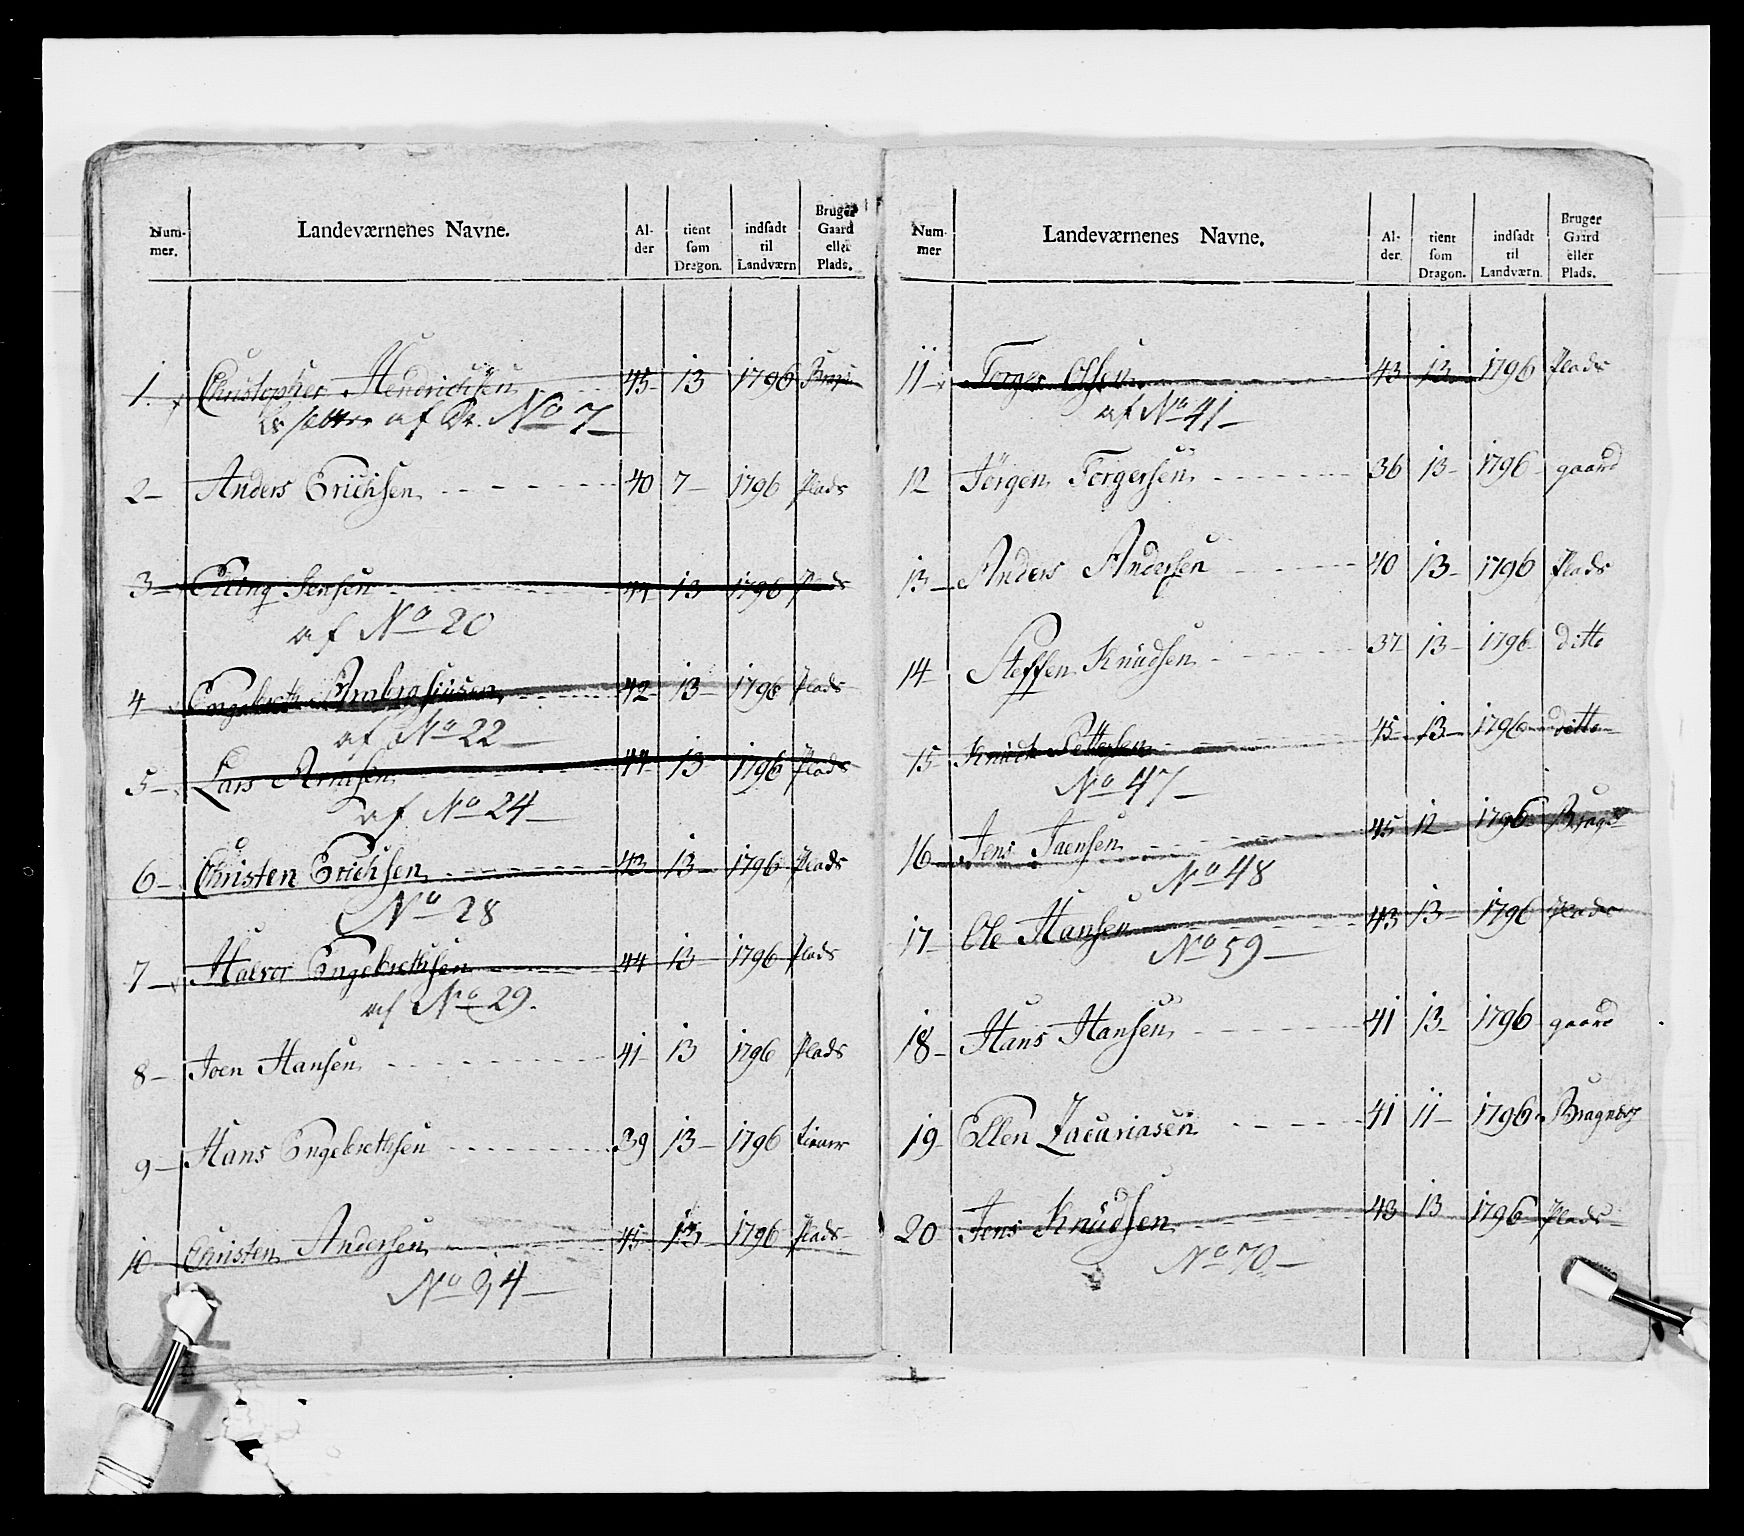 Num-mer. Landeværnenes Navne. Al-der tient som Dragon. indsadt til Landværn Bruger Gaard eller Plads.
1. Christopher Hendrichsen 45 13 1796
af No 7
2 Anders Erichsen 40 7 1796 Plads
3 Elling Jensen 44 13 1796 Plads
af No 20
4 Engebret 42 13 1796 Plads
af No 22
5 Lars Arnesen 44 13 1796 Plads
af No 24
6 Christen Erichsen 43 13 1796 Plads
No 28
7 Halvor Engebrethsen 44 13 1796 Plads
af No 29.
8 Joen Hansen 41 13 1796 Plads
9 Hans Engebrethsen 39 13 1796
10 Christen Andersen 45 13 1796 Plads
No 34
Num-mer Landeværnenes Navne. Al-der. tient som Dragon. indsadt til Landværn. Bruger Gaard eller Plads.
11 Torger Olsen 43 13 1796 Plads
af No 41
12 Jörgen Torgersen 36 13 1796 gaard
13 Anders Andersen 40 13 1796 Plads
14 Steffen Knudsen 37 13 1796 ditto
15 Knudt Pettersen 45 13 1796 ditto
No 47
16 Jens 45 12 1796
No 48
17 Ole Hansen 43 13 1796 Plads
No 59
18 Hans Hansen 41 13 1796 gaard
19 Ellen Zacariasen 41 11 1796
20 Jens Knudsen 43 13 1796 Plads
No 70